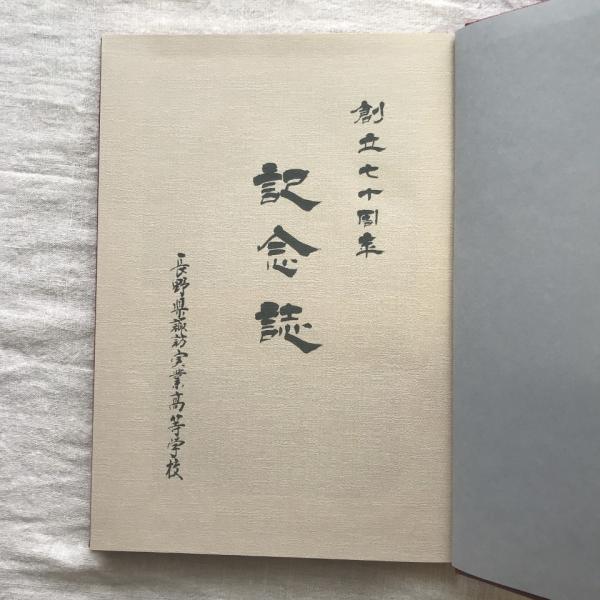 創立七十周年
記念誌
長野県諏訪実業高等学校